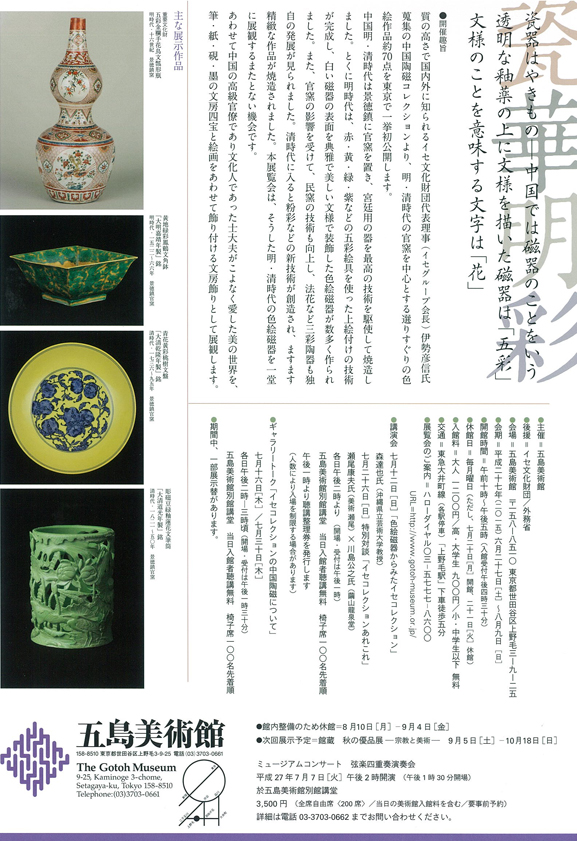 瓷華明彩
瓷器はやきもの―中国では磁器のことをいう
透明な釉薬の上に文様を描いた磁器は「五彩」
文様のことを意味する文字は「花」
●開催趣旨
質の高さで国内外に知られるイセ文化財団代表理事（イセグループ会長）伊勢彦信氏
蒐集の中国陶磁コレクションより、明・清時代の官窯を中心とする選りすぐりの色
絵作品約70点を東京で一挙初公開します。
中国明・清時代は景徳鎮に官窯を置き、宮廷用の器を最高の技術を駆使して焼造し
ました。とくに明時代は、赤・黄・緑・紫などの五彩絵具を使った上絵付けの技術
が完成し、白い磁器の表面を典雅で美しい文様で装飾した色絵磁器が数多く作られ
ました。また、官窯の影響を受けて、民窯の技術も向上し、法花など三彩陶器も独
自の発展が見られました。清時代に入ると粉彩などの新技術が創造され、ますます
精緻な作品が焼造されました。本展覧会は、そうした明・清時代の色絵磁器を一堂
に展観するまたとない機会です。
あわせて中国の高級官僚であり文化人であった士大夫がこよなく愛した美の世界を、
筆・紙・硯・墨の文房四宝と絵画をあわせて飾り付ける文房飾りとして展観します。
主な展示作品
重要文化財
五彩金襴手花鳥文瓢形瓶
明時代・十六世紀 景徳鎮窯
黄地緑彩鳳凰文角鉢
「大明嘉靖年製」銘
明時代・一五二二－六六年 景徳鎮官窯
青花黄彩桃樹文盤
「大清乾隆年製」銘
清時代・一七三六－九五年 景徳鎮官窯
「大清道光年製」銘
清時代・一八二一－五〇年 景徳鎮官窯
●主催＝五島美術館
●後援＝イセ文化財団／外務省
●会場＝五島美術館 〒一五八－八五一〇 東京都世田谷区上野毛三－九－二五
●会期＝平成二十七年（二〇一五）六月二十七日［土］－八月九日［日］
●開館時間＝午前十時－午後五時（入館受付午後四時三十分）
●休館日＝毎月曜日（ただし、七月二十日［月］開館、二十一日［火］休館）
●入館料＝大人 一二〇〇円／高・大学生 九〇〇円／小・中学生以下 無料
●交通＝東急大井町線（各駅停車）「上野毛駅」下車徒歩五分
●展覧会のご案内＝ハローダイヤル〇三－五七七七－八六〇〇
URL＝http://www.gotoh-museum.or.jp/
●講演会 七月十二日［日］「色絵磁器からみたイセコレクション」
森達也氏（沖縄県立芸術大学教授）
七月二十六日［日］特別対談「イセコレクションあれこれ」
瀬尾康夫氏（美術 瀬尾）×川島公之氏（繭山龍泉堂）
各日午後二時より（開場・受付は午後一時）
五島美術館別館講堂 当日入館者聴講無料 椅子席一〇〇名先着順
午後一時より聴講整理券を発行します
（人数により入場を制限する場合があります）
●ギャラリートーク「イセコレクションの中国陶磁について」
七月十六日［木］／七月三十日［木］
各日午後二時－三時頃（開場・受付は午後一時三十分）
五島美術館別館講堂 当日入館者聴講無料 椅子席一〇〇名先着順
●期間中、一部展示替があります。
五島美術館
158-8510 東京都世田谷区上野毛3-9-25 電話(03)3703-0661
The Gotoh Museum
9-25, Kaminoge 3-chome,
Setagaya-ku, Tokyo 158-8510
Telephone:(03)3703-0661
●館内整備のため休館=8月10日［月］－9月4日［金］
●次回展示予定=館蔵 秋の優品展 ―宗教と美術― 9月5日［土］－10月18日［日］
ミュージアムコンサート 弦楽四重奏演奏会
平成27年7月7日［火］午後2時開演 （午後1時30分開場）
於五島美術館別館講堂
3,500円 （全席自由席〈200席〉／当日の美術館入館料を含む／要事前予約）
詳細は電話 03-3703-0662 までお問い合わせください。